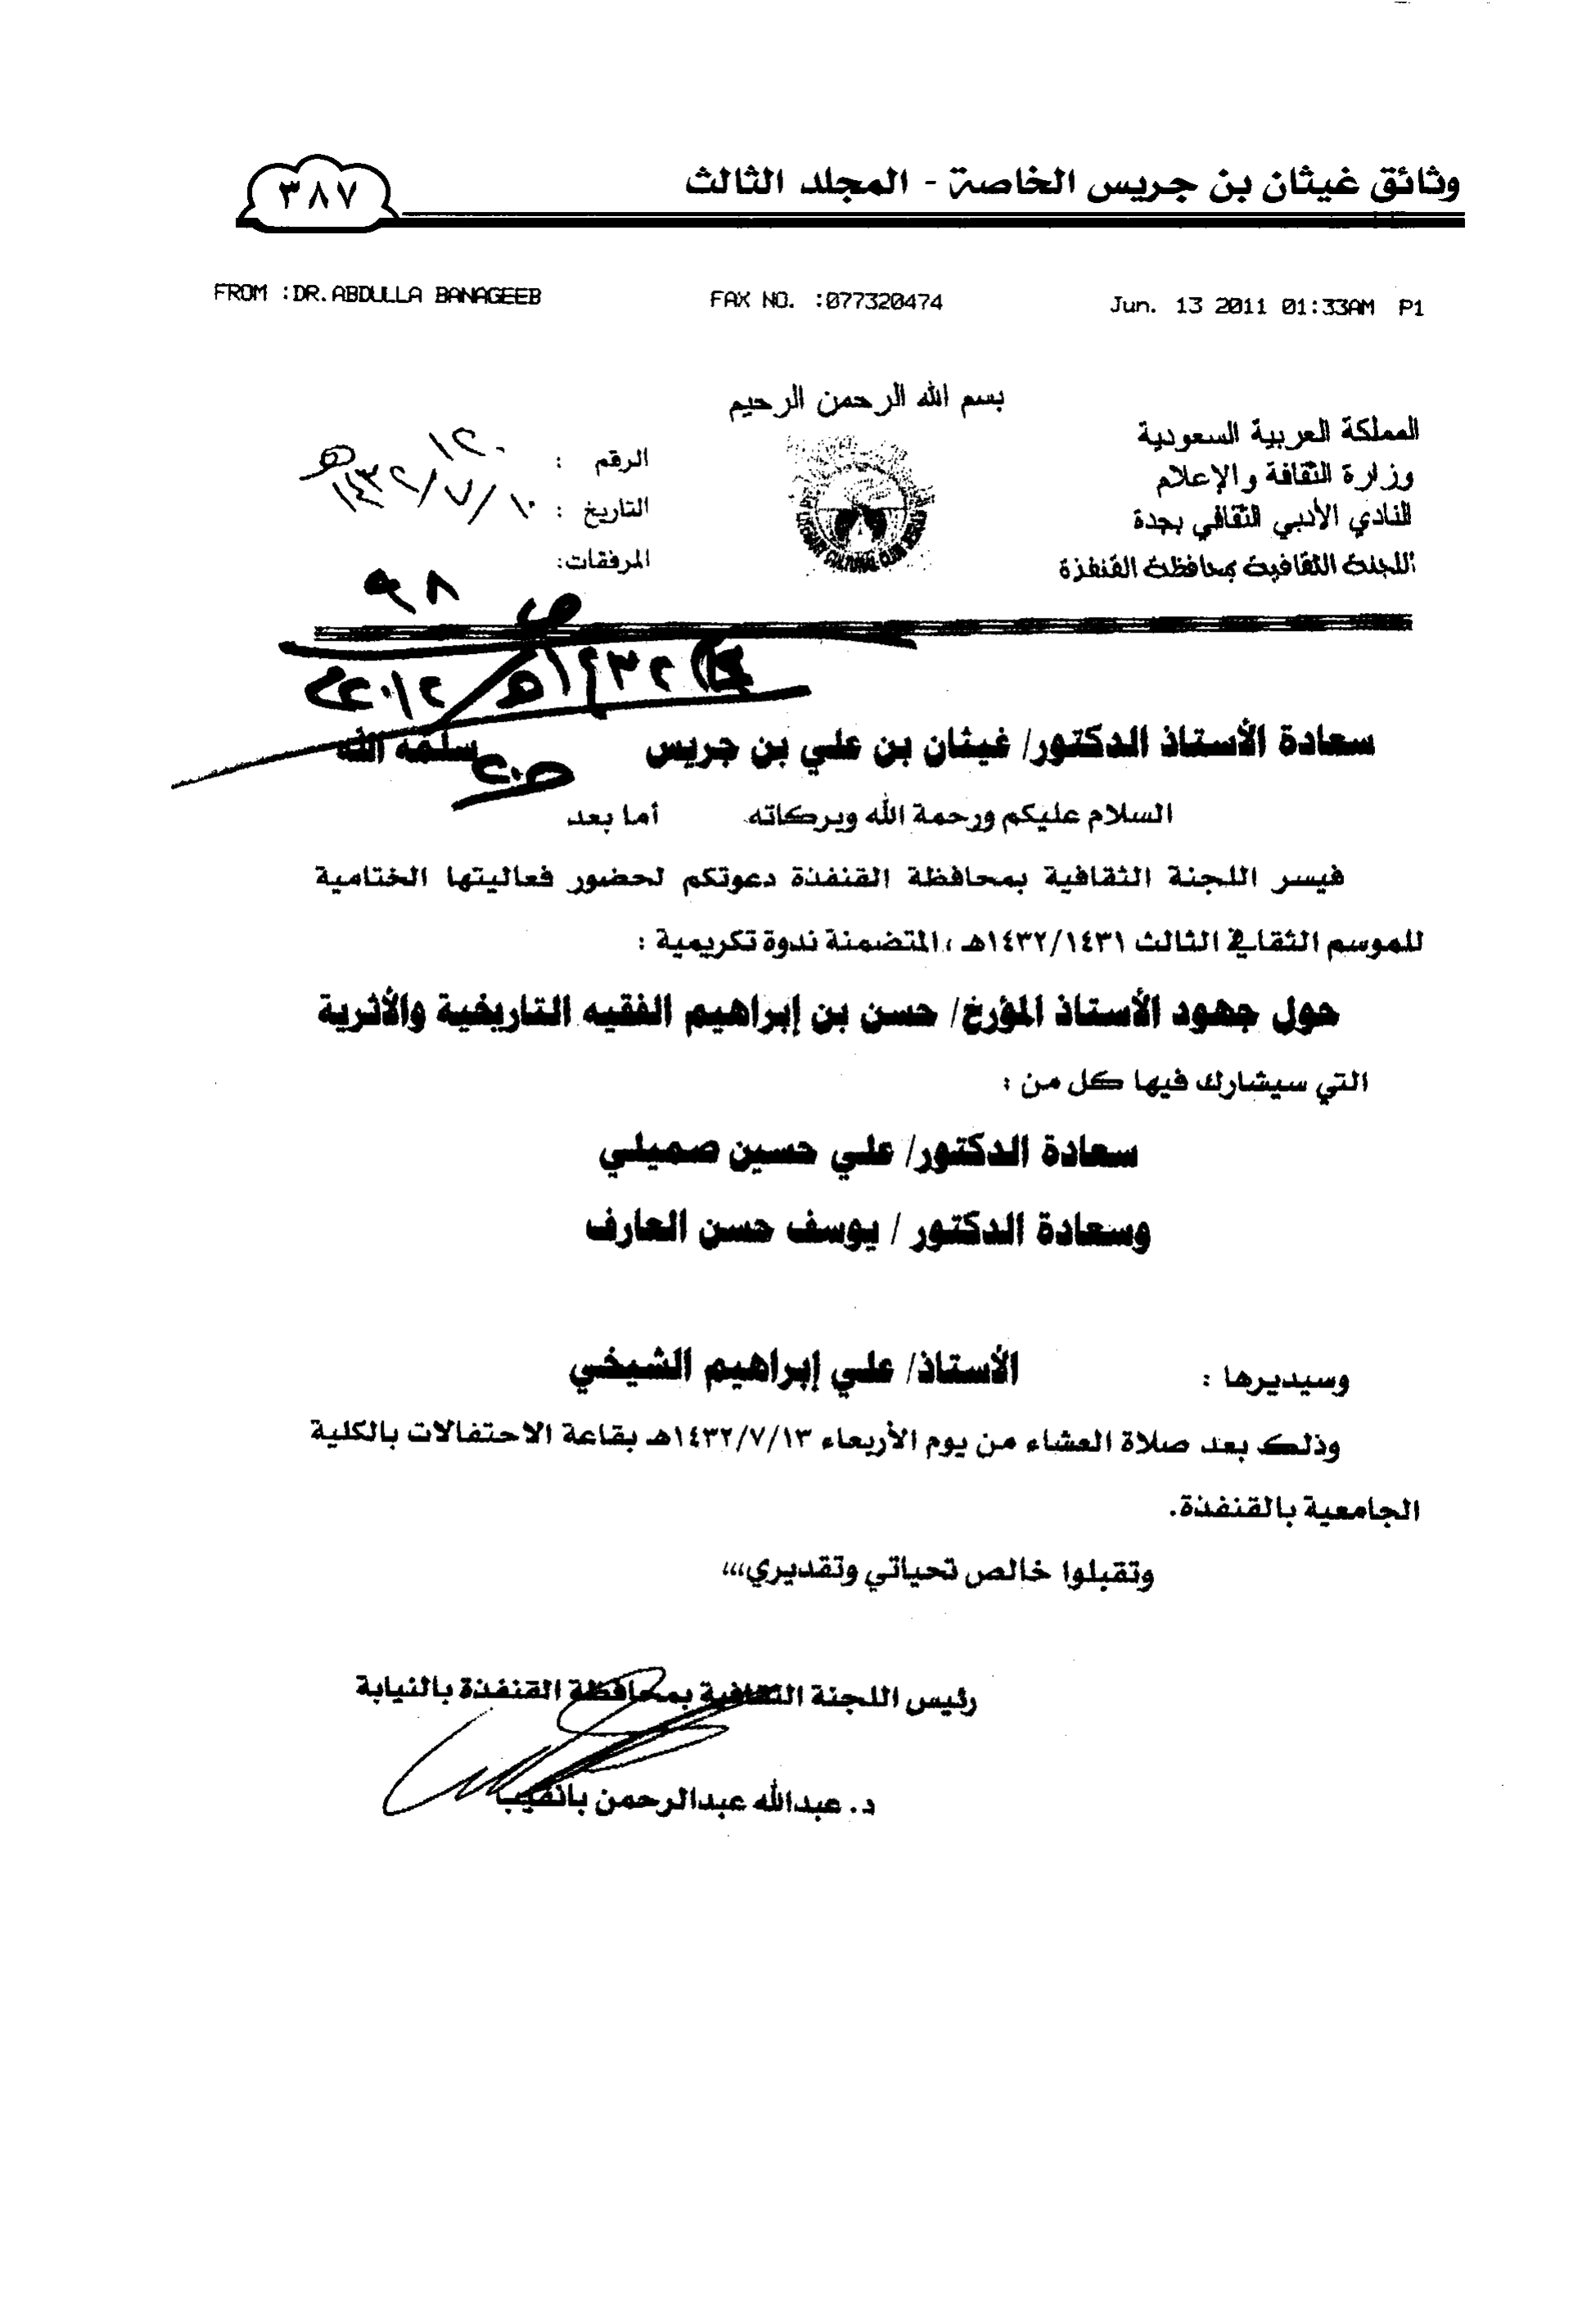 وثائق غيثان بن جريس الخاصة - المجلد الثالث
٣٨٧
FROM :DR.ABDULLA BANAGEEB FAX NO. :077320474 Jun. 13 2011 01:33AM P1
بسم الله الرحمن الرحيم
المملكة العربية السعودية
وزارة الثقافة والإعلام
النادي الأدبي الثقافي بجدة
اللجنة الثقافية بمحافظة القنفذة
الرقم : ١٢٠
التاريخ : ١٠/٧/١٤٣٢هـ
المرفقات:
ص ٩٨
١٤٣٢هـ/٢٠١٢م
سعادة الأستاذ الدكتور/ غيثان بن علي بن جريس سلمه الله
السلام عليكم ورحمة الله وبركاته أما بعد
فيسر اللجنة الثقافية بمحافظة القنفذة دعوتكم لحضور فعاليتها الختامية
للموسم الثقافي الثالث ١٤٣٢/١٤٣١هـ ، المتضمنة ندوة تكريمية :
حول جهود الأستاذ المؤرخ/ حسن بن إبراهيم الفقيه التاريخية والأثرية
التي سيشارك فيها كل من :
سعادة الدكتور/ علي حسين صميلي
وسعادة الدكتور / يوسف حسن العارف
وسيديرها : الأستاذ/ علي إبراهيم الشيخي
وذلك بعد صلاة العشاء من يوم الأربعاء ١٤٣٢/٧/١٣هـ بقاعة الاحتفالات بالكلية
الجامعية بالقنفذة.
وتقبلوا خالص تحياتي وتقديري،،،
رئيس اللجنة الثقافية بمحافظة القنفذة بالنيابة
د. عبدالله عبدالرحمن بانقيب